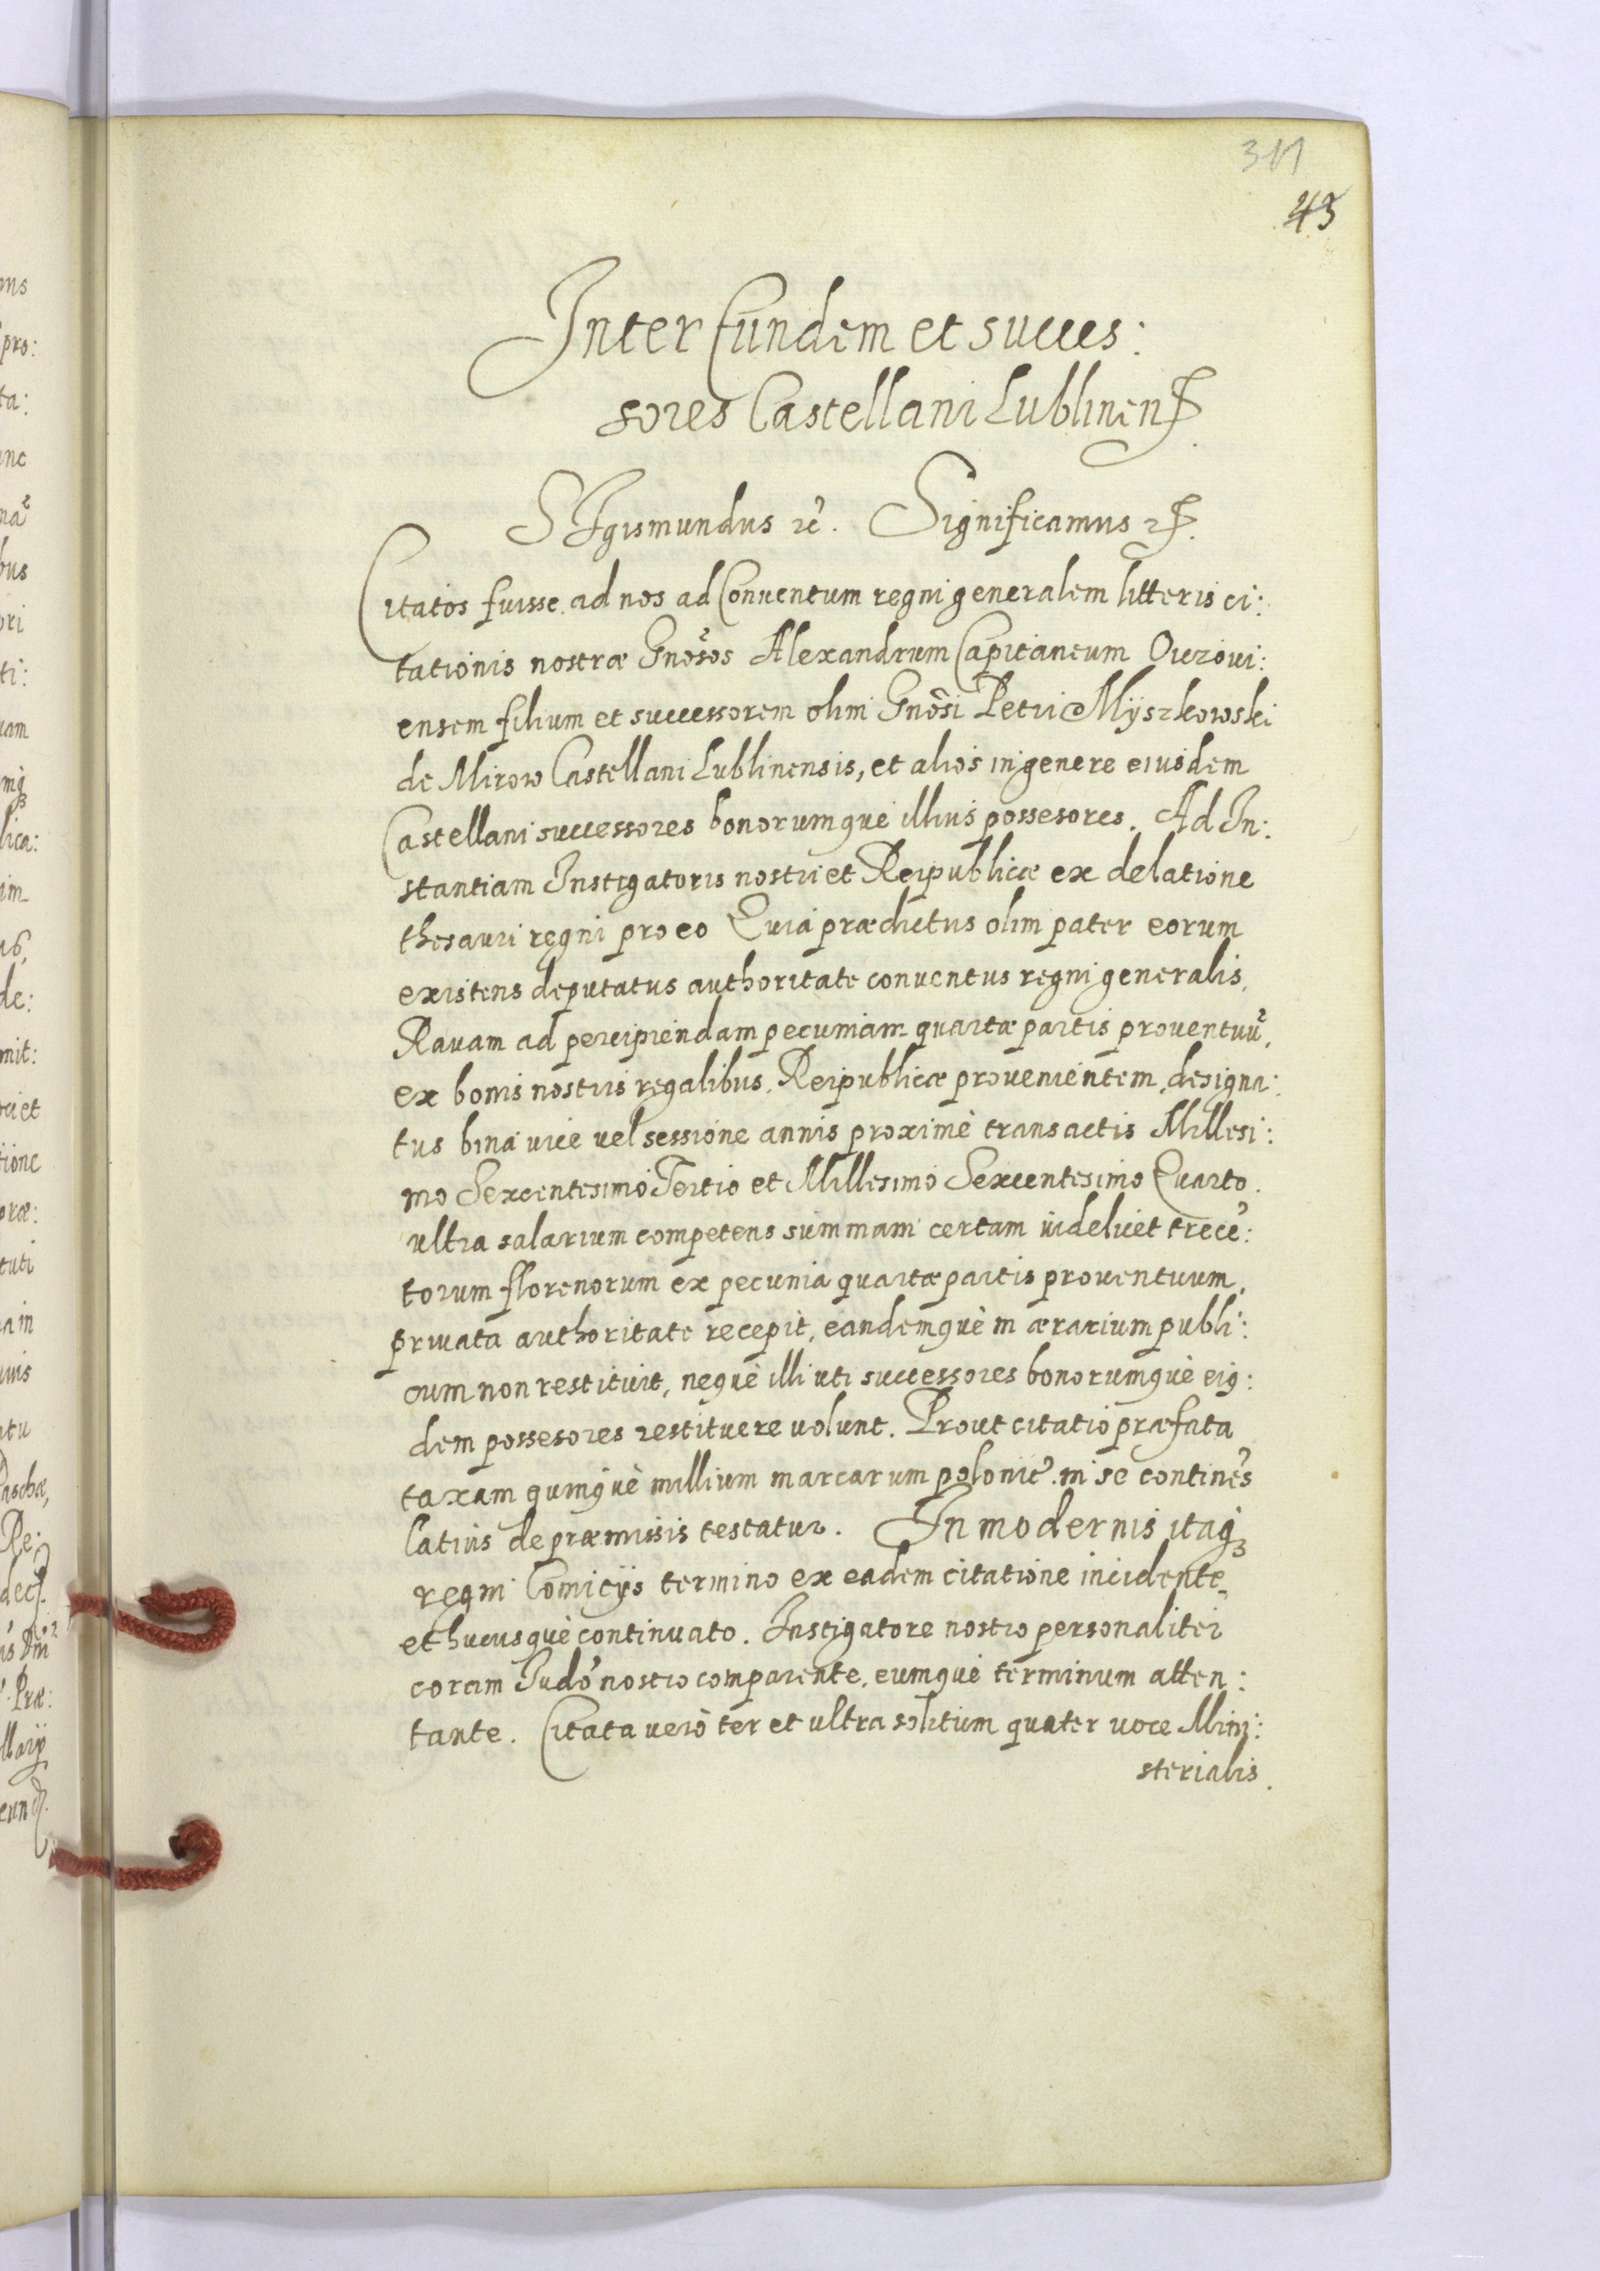 311
43
Inter Eundem et succes:
sores Castellani Lublinens.
SIgismundus etc. Significamus etc.
Citatos fuisse ad nos ad Conventum regni generalem litteris ci:
tationis nostræ Gnosos Alexandrum Capitaneum
ensem filium et successorem olim Gnosi Petri Myszkowski
de Mirow Castellani Lublinensis, et alios in genere eiusdem
Castellani successores bonorumque illius possesores. Ad In:
stantiam Instigatoris nostri et Reipublicæ ex delatione
thesauri regni pro eo Quia prædictus olim pater eorum
existens deputatus authoritate conventus regni generalis,
Ravam ad percipiendam pecuniam quartæ partis proventuũ,
ex bonis nostris regalibus, Reipublicæ provenientem, designa:
tus bina vice vel sessione annis proximè transactis Millesi:
mo Sexcentesimo Tertio et Millesimo Sexcentesimo Quarto.
ultra salarium competens summam certam videlicet trecẽ:
torum florenorum ex pecunia quartæ partis proventuum,
privata authoritate recepit, eandemquè in ærarium publi:
cum non restituit, nequè illi uti successores bonorumquè eiq:
dem possesores restituere volunt. Prout citatio præfata
taxam quinquè millium marcarum polonic. in se continẽs
latius de præmissis testatur. In modernis itaq
regni Comicÿs termino ex eadem citatione incidente
et hucusquè continuato. Instigatore nostro personaliter
coram Judo nostro comparente, eumquè terminum atten:
tante. Citata verò ter et ultra solitum quater voce Mini:
sterialis.
ms
pro:
ta:
bus
ti:
lica:
de:
mit:
tione
ræ:
tuti
Re: